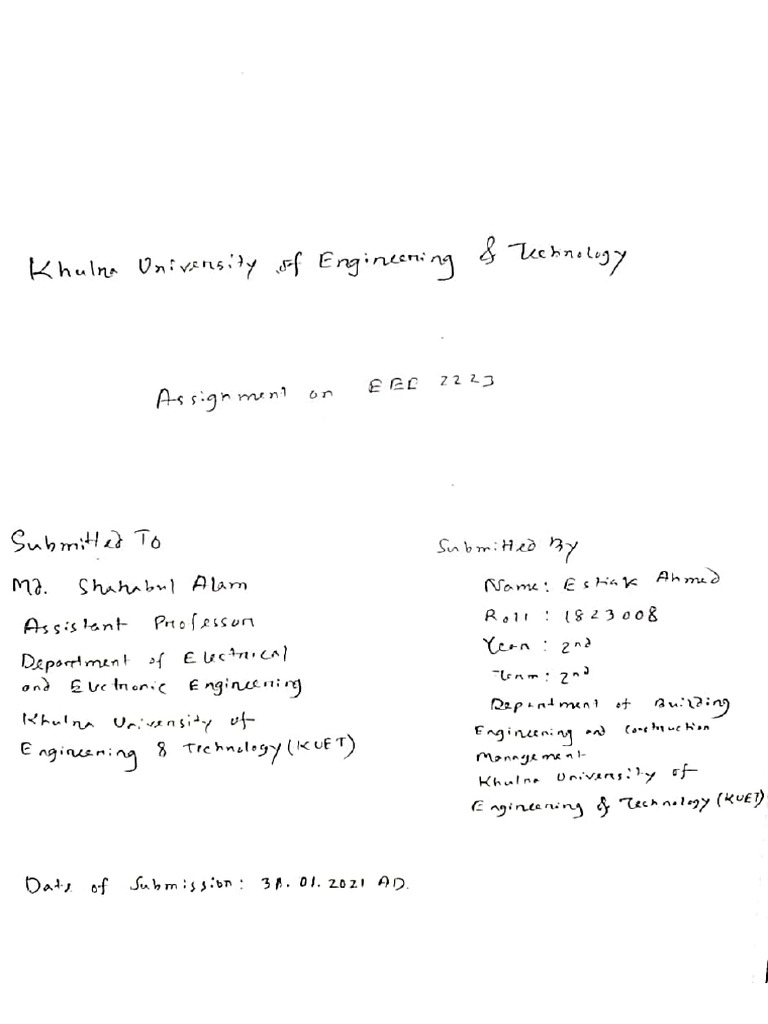 Khulna University of Engineering & Technology
Assignment on EEE 2223
Submitted To
Md. Shahabul Alam
Assistant Professor
Department of Electrical
and Electronic Engineering
Khulna University of
Engineering & Technology (KUET)
Submitted By
Name: Estiak Ahmed
Roll: 1823008
Year: 2nd
Term: 2nd
Department of Building
Engineering and Construction
Management
Khulna University of
Engineering & Technology (KUET)
Date of Submission: 31.01.2021 AD.